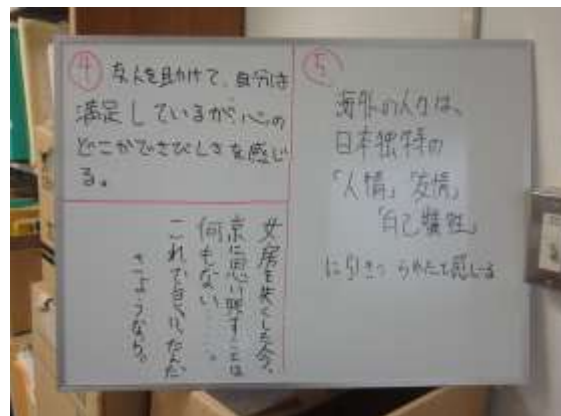 ④ 友人を助けて、自分は
満足しているが、心の
どこかでさびしさを感じ
る。
女房を失くした今、
京に思い残すことは
何もない……。
これで良かったんだ
さようなら。
⑤
海外の人々は、
日本独特の
「人情」「友情」
「自己犠牲」
に引きつけられたと感じる